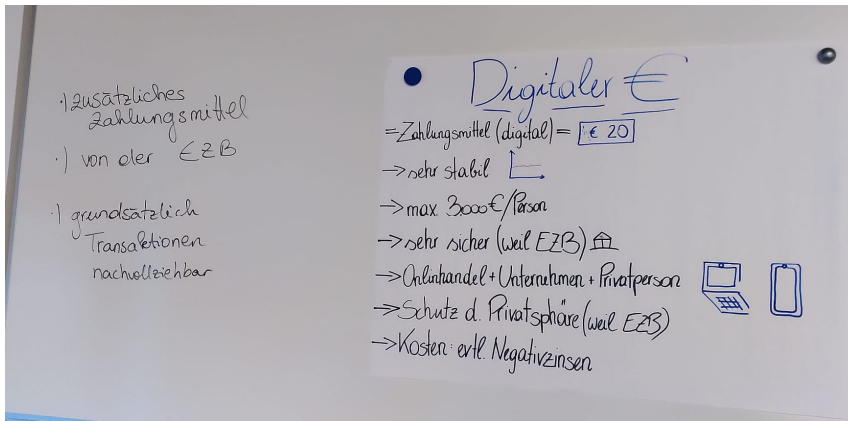 ·) zusätzliches
Zahlungsmittel
·) von der EZB
·) grundsätzlich
Transaktionen
nachvollziehbar
Digitaler €
= Zahlungsmittel (digital) = € 20
→ sehr stabil
→ max. 3000€/Person
→ sehr sicher (weil EZB)
→ Onlinhandel + Unternehmen + Privatperson
→ Schutz d. Privatsphäre (weil EZB)
→ Kosten: evtl. Negativzinsen